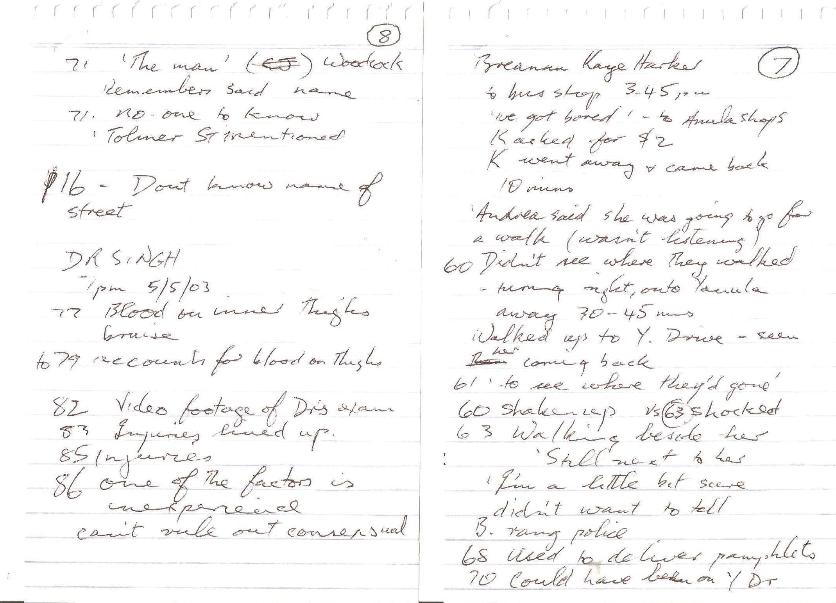 8
71 'The man' () Woodcock
Remembers said name
71. no-one to know
'Tolmer St mentioned
16 - Dont know name of
street
DR SINGH
7pm 5/5/03
77 Blood on inner thighs
bruise
to 79 accounts for blood on thighs
82 Video footage of Dr's exam
83 Injuries lined up.
85 Injuries
86 one of the factors is
inexperience
can't rule out consensual
7
Breanan Kaye Harker
to bus stop 3.45pm
'we got bored' - to Anula shops
K asked for $2
K went away & came back
10 mins
'Andrea said she was going to go for
a walk (wasn't listening)
60 Didn't see where they walked
- turning right, onto Yanula
away 30-45 mns
Walked up to Y. Drive - seen
her coming back
61 'to see where they'd gone'
60 shaken up vs 63 shocked
63 Walking beside her
'Still next to her
'I'm a little bit scare
didn't want to tell
B. rang police
68 used to deliver pamphlets
70 Could have been on Y Dr